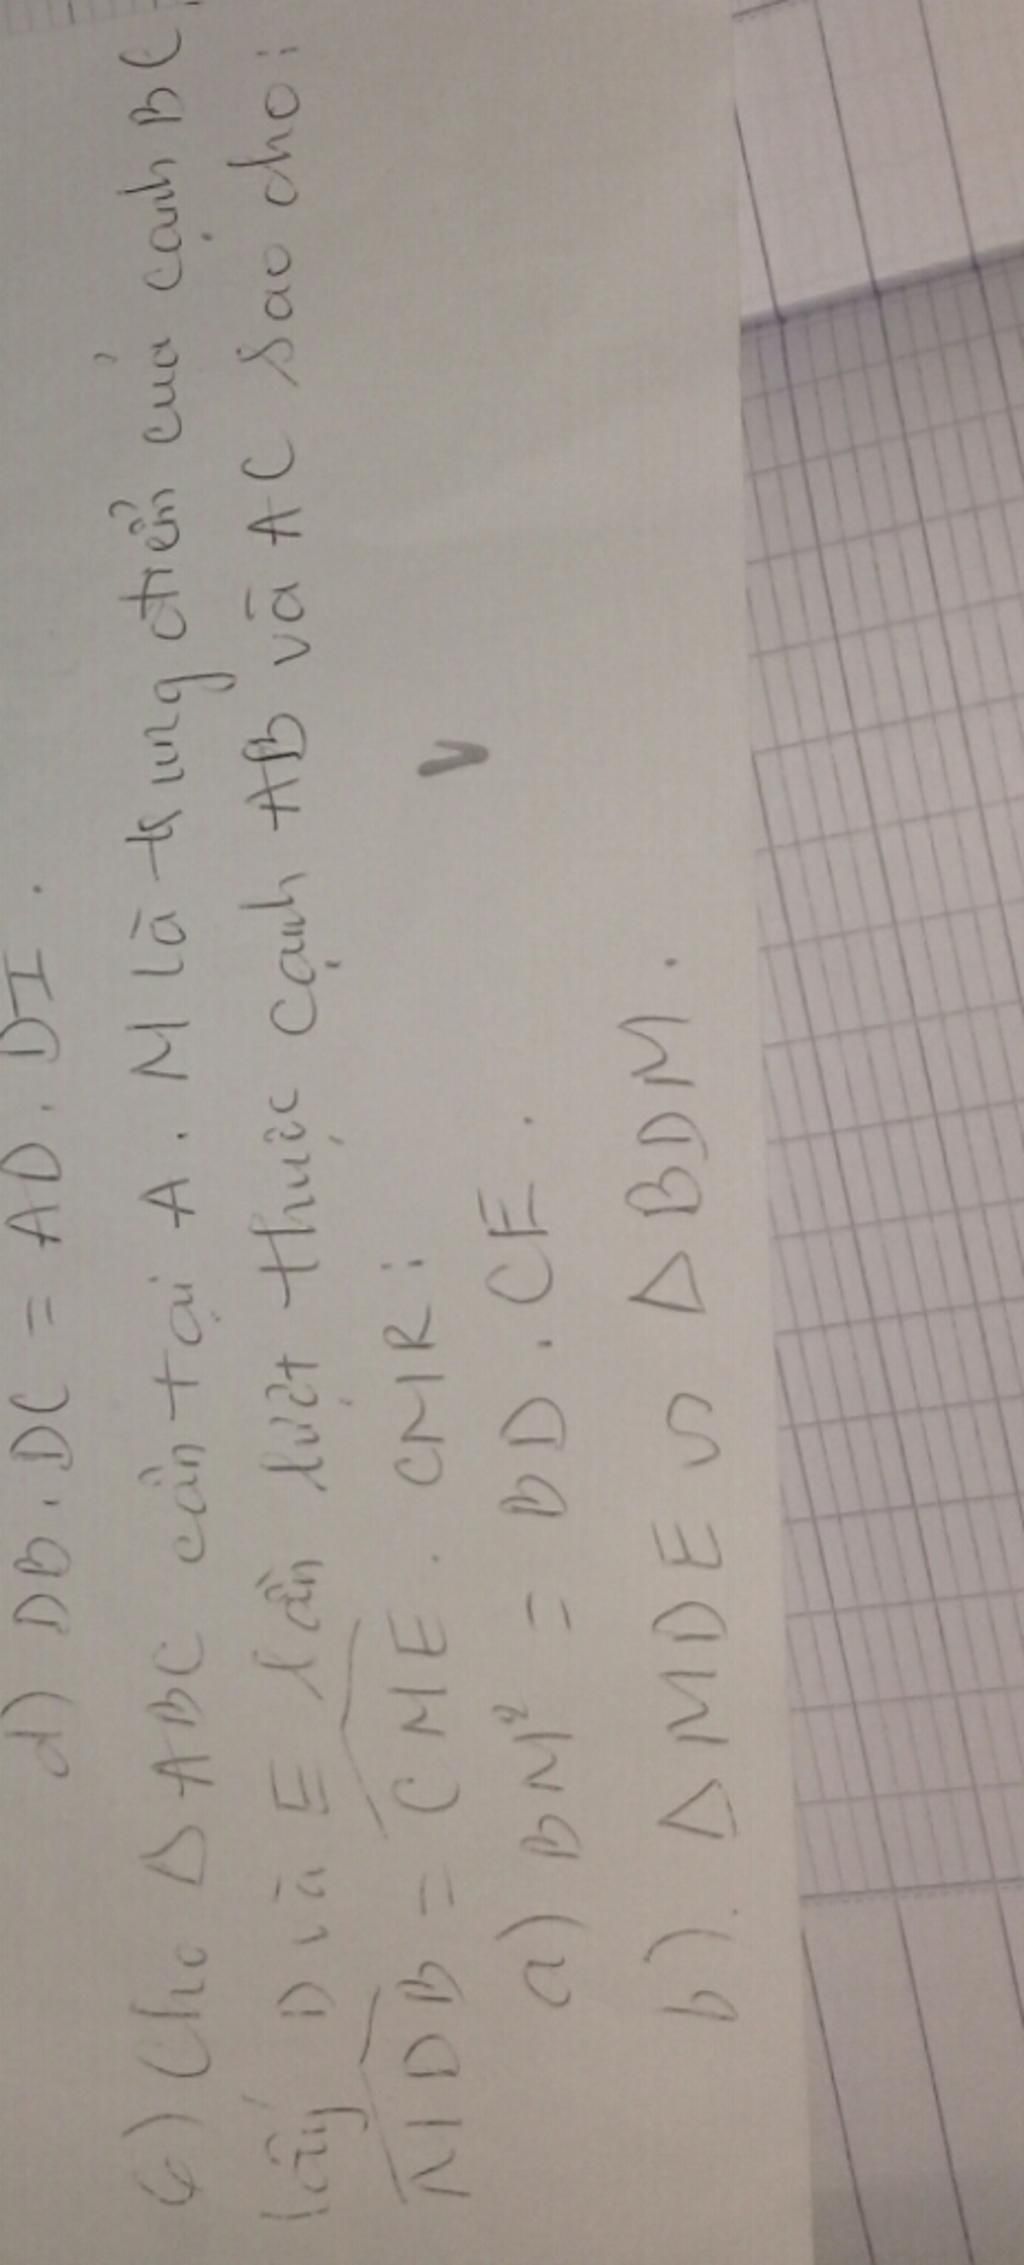 d) DB.DC = AD.DI.
6) Cho Δ ABC cân tại A. M là trung điểm của cạnh BC.
lấy D và E lần lượt thuộc cạnh AB và AC sao cho:
MDB = CME. CMR:
a) BM² = BD.CE.
b). Δ MDE ∽ Δ BDM.